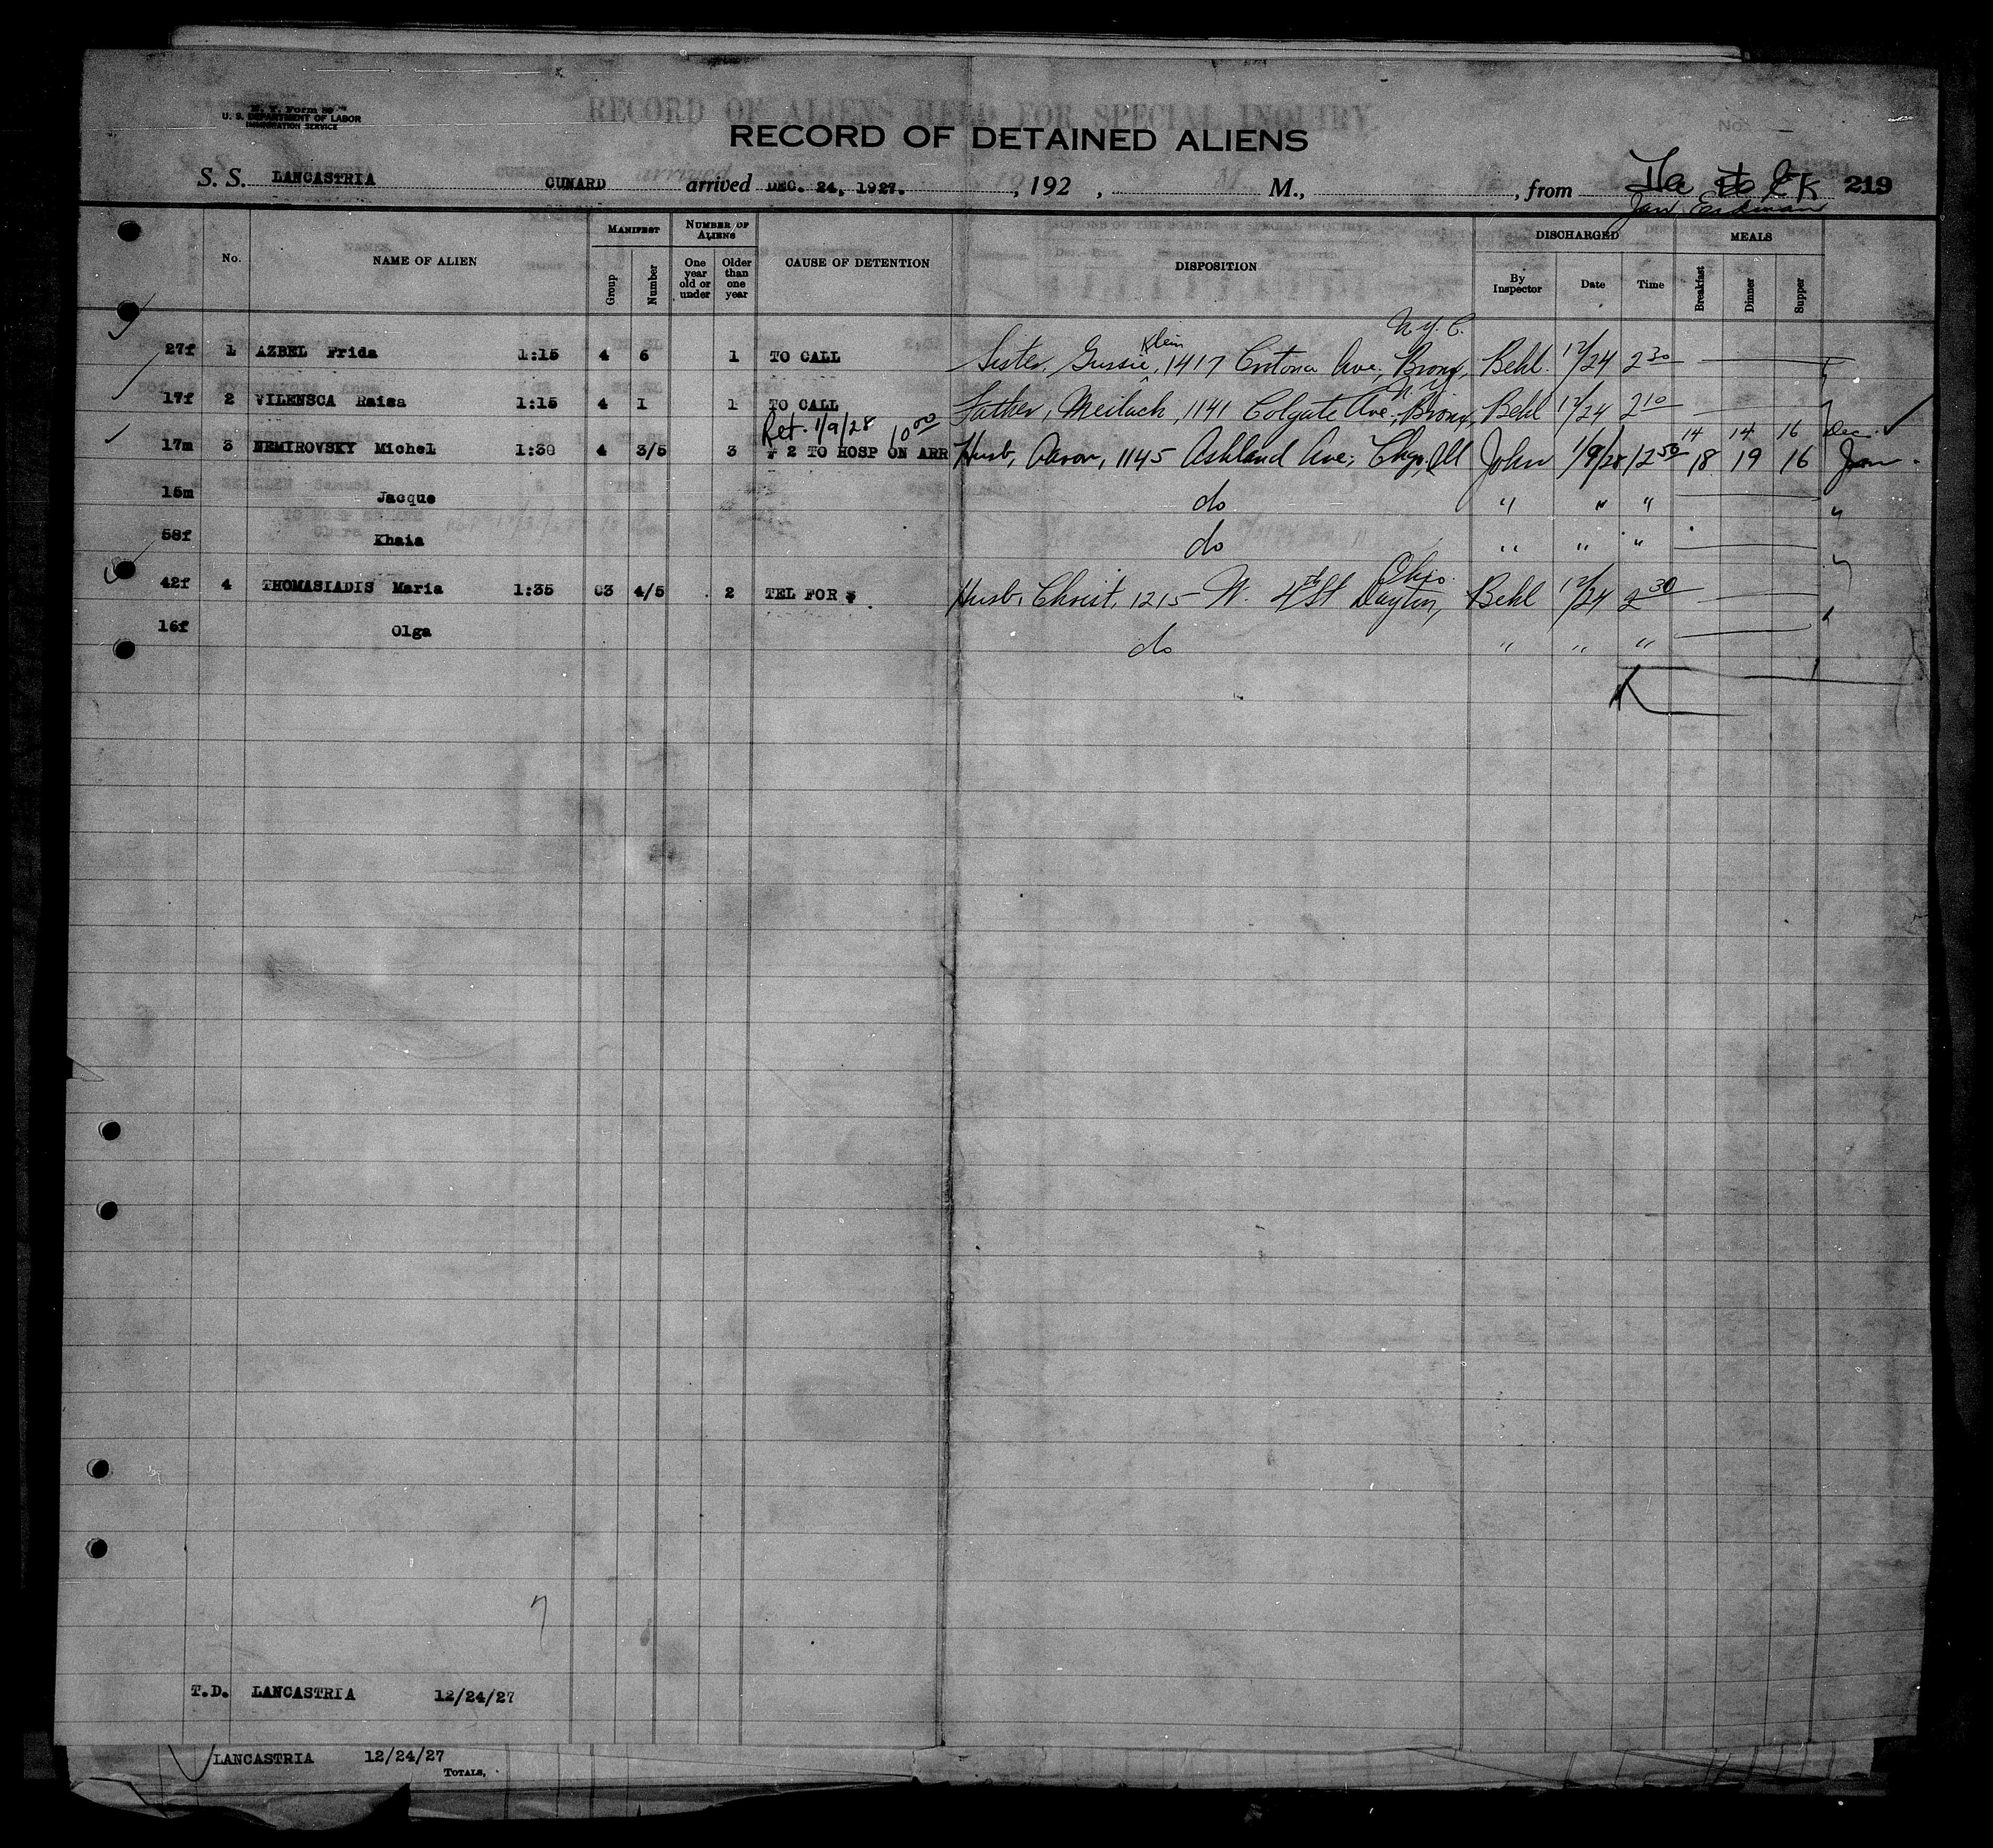 N. Y. Form
U. S. DEPARTMENT OF LABOR
IMMIGRATION SERVICE
RECORD OF ALIENS HELD FOR SPECIAL INQUIRY
RECORD OF DETAINED ALIENS
S. S. LANCASTRIA CUNARD arrived DEC. 24, 1927. , 192 , M., , from 219
No. NAME OF ALIEN MANIFEST Group Number NUMBER OF ALIENS One year old or under Older than one year CAUSE OF DETENTION DISPOSITION DISCHARGED By Inspector Date Time MEALS Breakfast Dinner Supper
N.Y.C.
27f 1 AZBEL Frida 1:15 4 6 1 TO CALL Sister, Gussie Klein, 1417 Crotona Ave., Bronx, Behl. 12/24 2 30
N.Y.
17f 2 VILENSCA Raisa 1:15 4 1 1 TO CALL Father, Meilach, 1141 Colgate Ave., Bronx, Behl 12/24 2 10
Ret. 1/9/28 10 00 14 14 16 Dec.
17m 3 NEMIROVSKY Michel 1:30 4 3/5 3 2 TO HOSP ON ARR Husb, Aaron, 1145 Ashland Ave., Chgo, Ill John 1/9/28 12 50 18 19 16 Jan.
15m Jacque do " " "
58f Khaia do " " "
Ohio.
42f 4 THOMASIADIS Maria 1:35 03 4/5 2 TEL FOR $ Husb, Christ, 1215 W. 4th St Dayton, Behl 12/24 2 30
16f Olga do " " "
T.D. LANCASTRIA 12/24/27
LANCASTRIA 12/24/27
TOTALS,